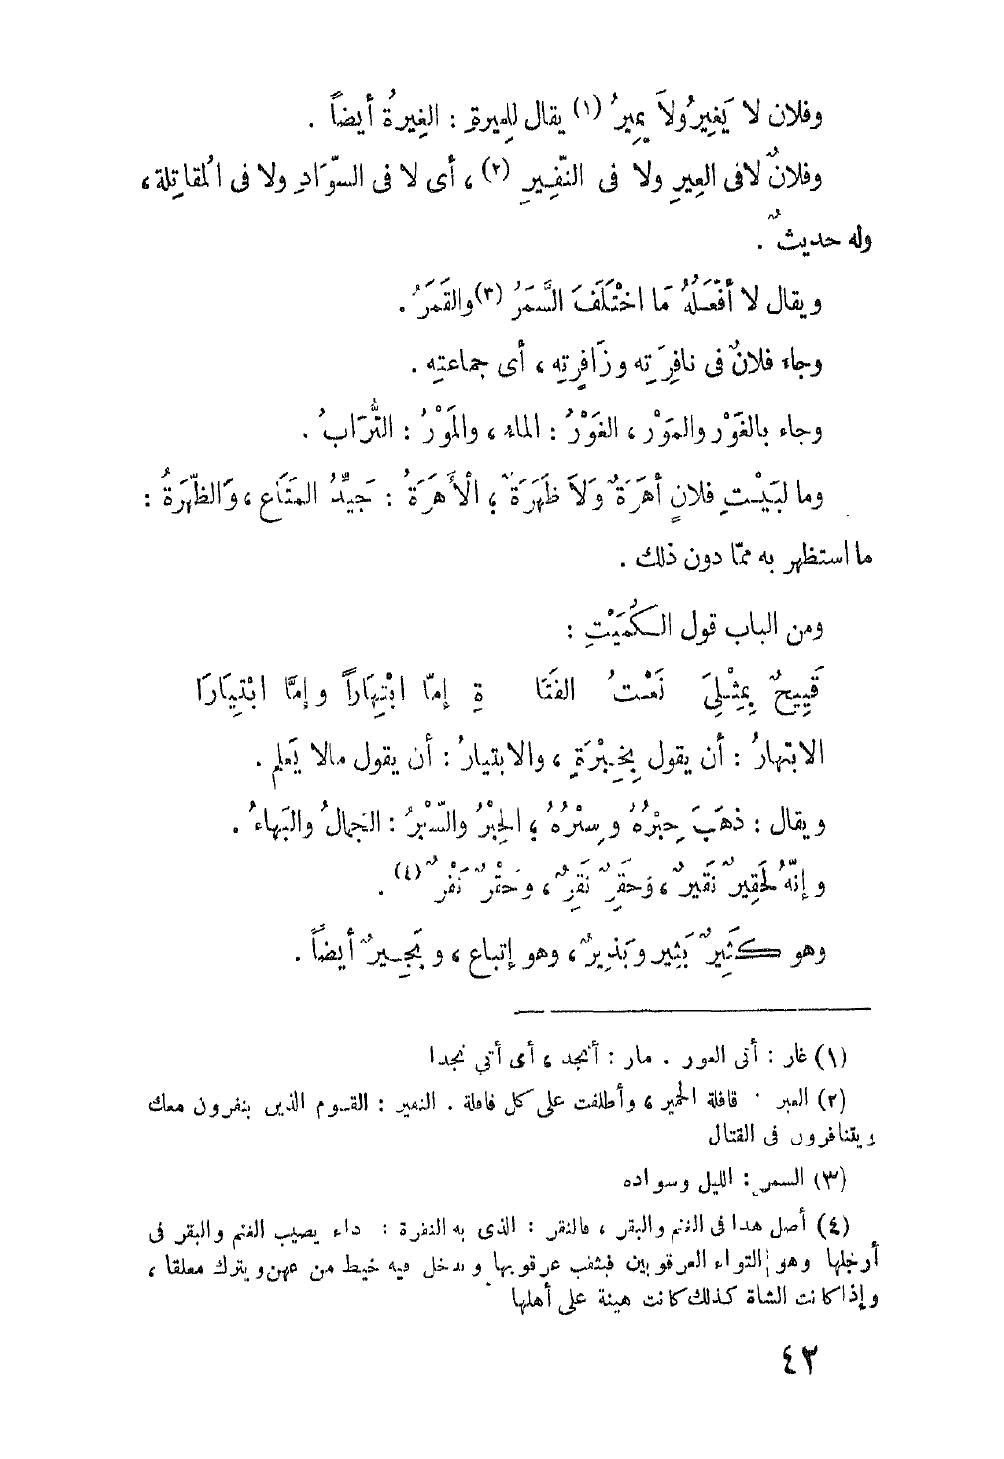 وفلان لا يَغِيرُ ولاَ يَمِيرُ (١) يقال لِلِميرةِ : الغِيرةُ أيضاً .
وفلانٌ لا فى العِيرِ ولا فى النَّفِيرِ (٢) ، أى لا فى السوَّادِ ولا فى الْمقاتِلة ،
وله حديثٌ .
ويقال لا أَفْعَلُهُ مَا اخْتَلَفَ السَّمَرُ (٣) والقَمَرُ .
وجاء فلانٌ فى نافِرَتِه وزَافِرتِه ، أى جماعتِه .
وجاء بالغَوْر والمَوْر ، الغَوْرُ : الماء ، والمَوْرُ : التُّرَابُ .
وما لبَيْتِ فلانٍ أَهَرَةٌ وَلاَ ظَهَرَةٌ ؛ الْأَهَرَةُ : جَيِّدُ المَتَاع ، وَالظَّهَرَةُ :
ما استظهر به ممّا دون ذلك .
ومن الباب قول الكُمَيْتِ :
قَبِيحٌ بِمِثْلِىَ نَعْتُ الفَتَا ةِ إمّا ابْتِهَاراً وإمَّا ابْتِيَارَا
الابتهارُ : أن يقول بِخِبْرَةٍ ، والابتيارُ : أن يقول مالا يَعلم .
ويقال : ذهَبَ حِبْرُهُ وسِبْرُهُ ؛ الحِبْرُ والسِّبْرُ : الجمالُ والبَهاءُ .
وإنَّهُ لَحَقِيرٌ نَقَيرٌ ، وَحَقِرٌ نَقِرٌ ، وحَقْرٌ نَقْرٌ (٤) .
وهو كَثِيرٌ بَثِير وبَذِيرٌ ، وهو إتباع ، وبَجِيرٌ أيضاً .
(١) غار : أتى الغور . مار : أنجد ، أى أتي نجدا
(٢) العير : قافلة الحمير ، وأطلقت على كل قافلة . النفير : القوم الذين ينفرون معك
ويتنافرون فى القتال
(٣) السمر : الليل وسواده
(٤) أصل هذا فى الغنم والبقر ، فالنقر : الذى به النقرة : داء يصيب الغنم والبقر فى
أرجلها وهو التواء العرقوبين فيثقب عرقوبها ويدخل فيه خيط من عهن ويترك معلقا ،
وإذا كانت الشاة كذلك كانت هينة على أهلها
٤٣